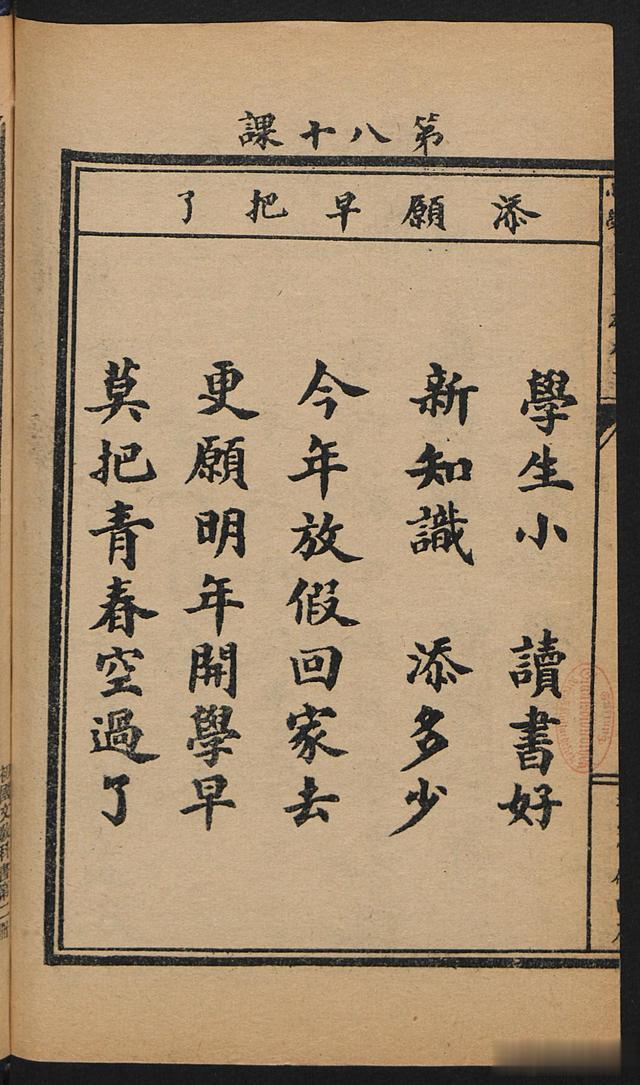 第八十課
添願早把了
學生小 讀書好
新知識 添多少
今年放假回家去
更願明年開學早
莫把青春空過了